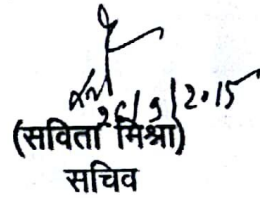 26/9/2015
(सविता मिश्रा)
सचिव